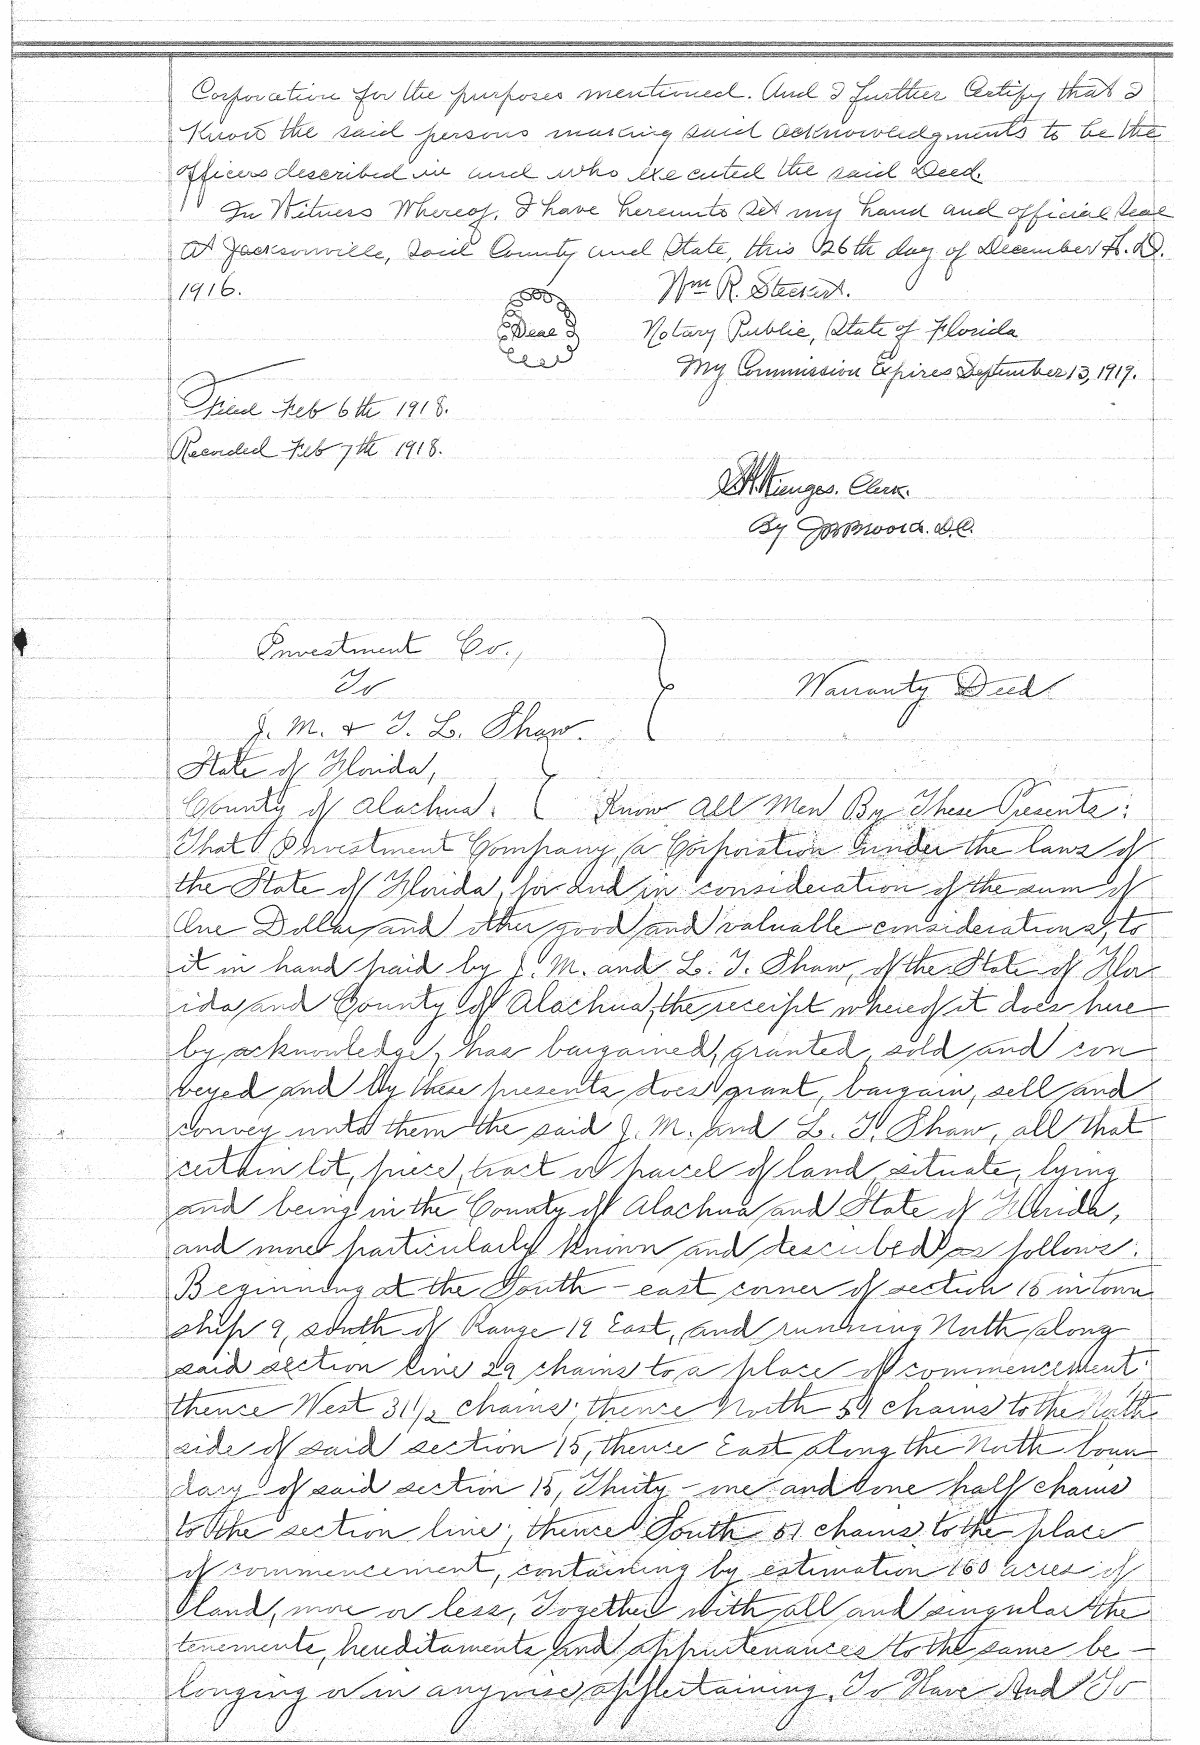 Corporation for the purposes mentioned. And I further Certify that I
Know the said persons making said acknowledgments to be the
officers described in and who executed the said Deed.
In Witness Whereof, I have hereunto set my hand and official Seal
At Jacksonville, Said County and State, this 26th day of December A.D.
1916.
Wm R. Steckert.
Seal
Notary Public, State of Florida
My Commission Expires September 13, 1919.
Filed Feb 6th 1918.
Recorded Feb 7th 1918.
Wienges. Clerk.
By D.C.
Investment Co.,
To
J. M. & T. L. Shaw.
Warranty Deed
State of Florida,
County of Alachua. Know All Men By These Presents:
That Investment Company, a Corporation under the laws of
the State of Florida, for and in consideration of the sum of
One Dollar and other good and valuable considerations, to
it in hand paid by J. M. and L. T. Shaw, of the State of Flor
ida and County of Alachua, the receipt whereof it does here
by acknowledge, has bargained, granted, sold and con
veyed and by these presents does grant, bargain, sell and
convey unto them the said J. M. and L. T. Shaw, all that
certain lot, piece, tract or parcel of land, situate, lying
and being in the County of Alachua and State of Florida,
and more particularly known and described as follows:
Beginning at the South-east corner of section 15 in town
ship 9, south of Range 19 East, and running North along
said section line 29 chains to a place of commencement;
thence West 31 1/2 chains; thence North 51 chains to the North
side of said section 15, thence East along the North boun
dary of said section 15, Thirty-one and one half chains
to the section line; thence South 51 chains to the place
of commencement, containing by estimation 160 acres of
land, more or less, Together with all and singular the
tenements, hereditaments and appurtenances to the same be-
longing or in anywise appertaining. To Have And To